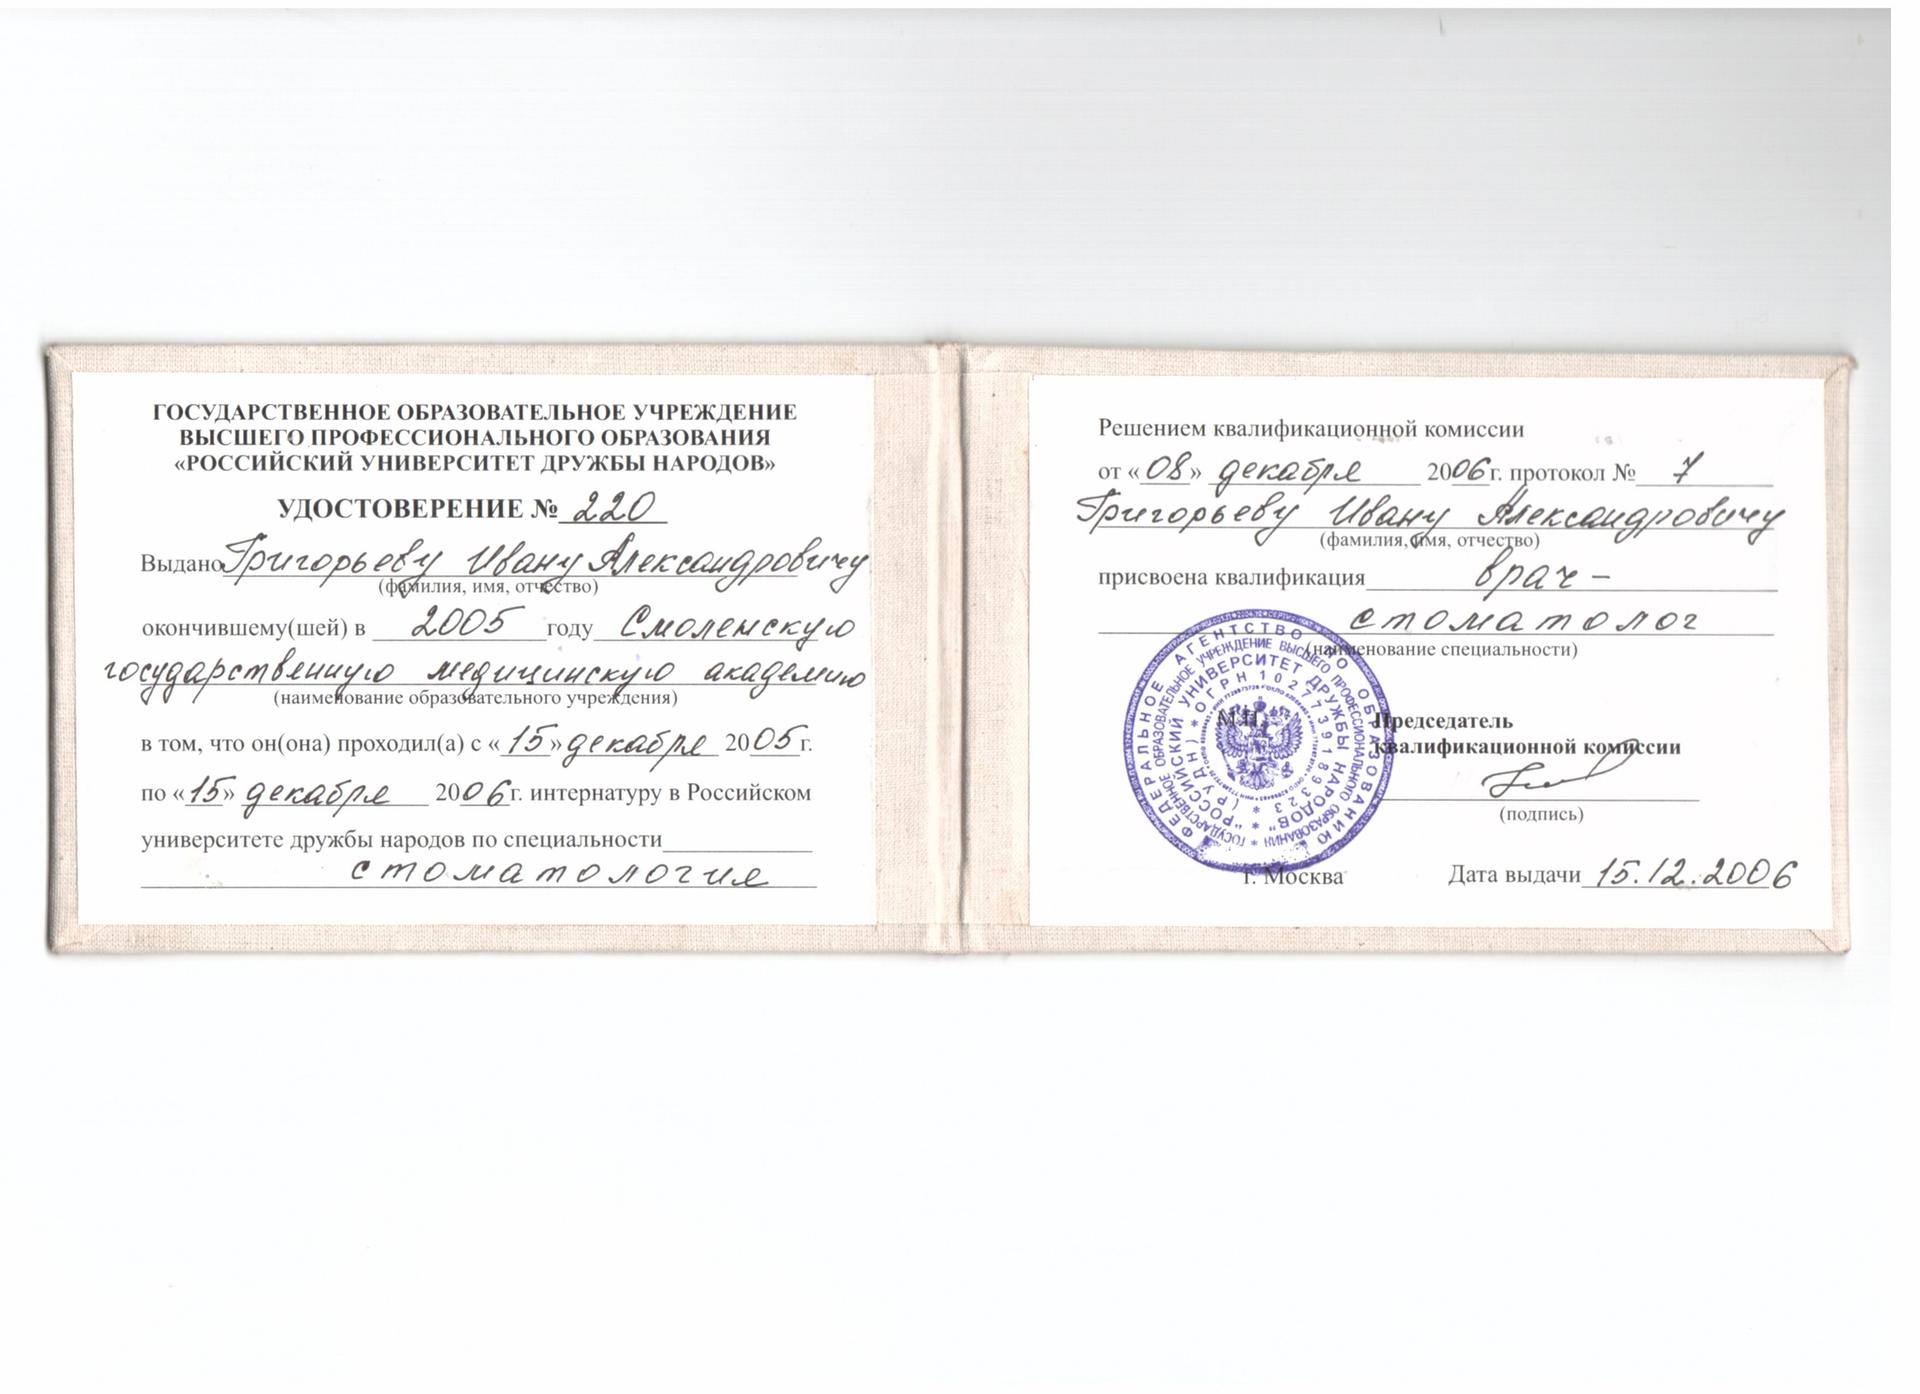 ГОСУДАРСТВЕННОЕ ОБРАЗОВАТЕЛЬНОЕ УЧРЕЖДЕНИЕ
ВЫСШЕГО ПРОФЕССИОНАЛЬНОГО ОБРАЗОВАНИЯ
«РОССИЙСКИЙ УНИВЕРСИТЕТ ДРУЖБЫ НАРОДОВ»
УДОСТОВЕРЕНИЕ № 220
Выдано Григорьеву Ивану Александровичу
(фамилия, имя, отчество)
окончившему(шей) в 2005 году Смоленскую
государственную медицинскую академию
(наименование образовательного учреждения)
в том, что он(она) проходил(а) с «15» декабря 2005г.
по «15» декабря 2006г. интернатуру в Российском
университете дружбы народов по специальности
стоматология
Решением квалификационной комиссии
от «08» декабря 2006г. протокол № 7
Григорьеву Ивану Александровичу
(фамилия, имя, отчество)
присвоена квалификация врач -
стоматолог
(наименование специальности)
М.П.
Председатель
квалификационной комиссии
(подпись)
г. Москва Дата выдачи 15.12.2006
ФЕДЕРАЛЬНОЕ АГЕНТСТВО ПО ОБРАЗОВАНИЮ
ГОСУДАРСТВЕННОЕ ОБРАЗОВАТЕЛЬНОЕ УЧРЕЖДЕНИЕ ВЫСШЕГО ПРОФЕССИОНАЛЬНОГО ОБРАЗОВАНИЯ
"РОССИЙСКИЙ УНИВЕРСИТЕТ ДРУЖБЫ НАРОДОВ"
(РУДН) * ОГРН 1027739189323 *